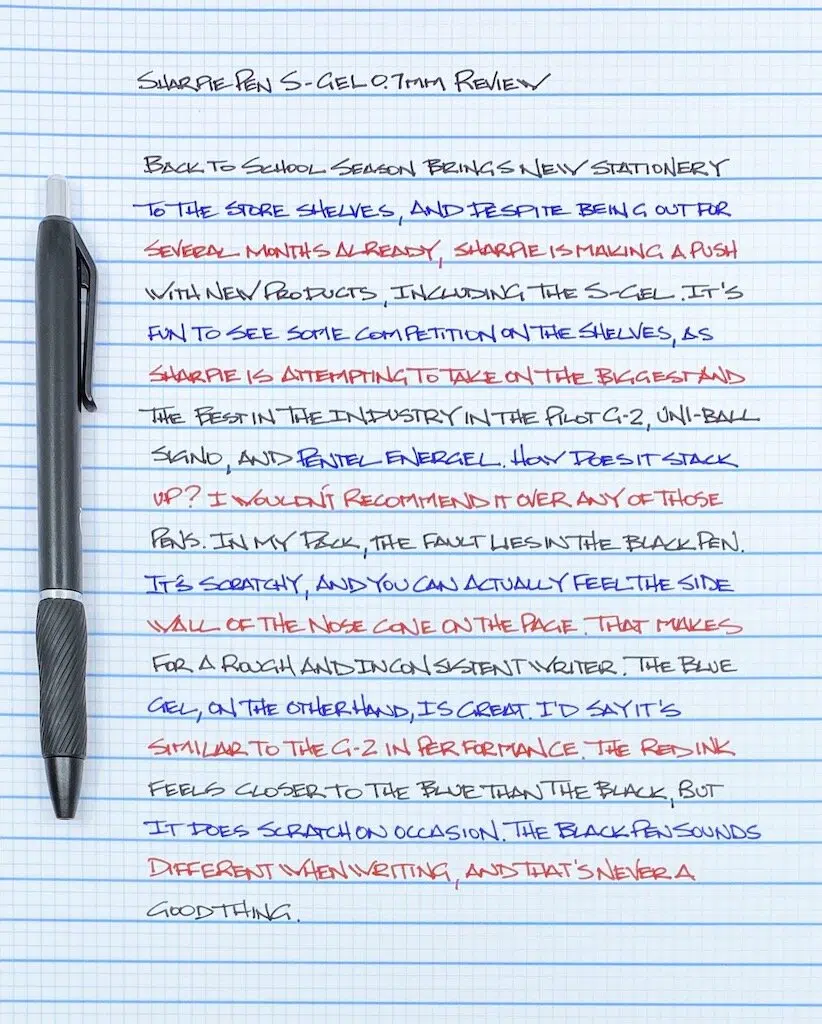 SHARPIE PEN S-GEL 0.7MM REVIEW
BACK TO SCHOOL SEASON BRINGS NEW STATIONERY
TO THE STORE SHELVES, AND DESPITE BEING OUT FOR
SEVERAL MONTHS ALREADY, SHARPIE IS MAKING A PUSH
WITH NEW PRODUCTS, INCLUDING THE S-GEL. IT'S
FUN TO SEE SOME COMPETITION ON THE SHELVES, AS
SHARPIE IS ATTEMPTING TO TAKE ON THE BIGGEST AND
THE BEST IN THE INDUSTRY IN THE PILOT G-2, UNI-BALL
SIGNO, AND PENTEL ENERGEL. HOW DOES IT STACK
UP? I WOULDN'T RECOMMEND IT OVER ANY OF THOSE
PENS. IN MY PACK, THE FAULT LIES IN THE BLACK PEN.
IT'S SCRATCHY, AND YOU CAN ACTUALLY FEEL THE SIDE
WALL OF THE NOSE CONE ON THE PAGE. THAT MAKES
FOR A ROUGH AND INCONSISTENT WRITER. THE BLUE
GEL, ON THE OTHER HAND, IS GREAT. I'D SAY IT'S
SIMILAR TO THE G-2 IN PERFORMANCE. THE RED INK
FEELS CLOSER TO THE BLUE THAN THE BLACK, BUT
IT DOES SCRATCH ON OCCASION. THE BLACK PEN SOUNDS
DIFFERENT WHEN WRITING, AND THAT'S NEVER A
GOOD THING.